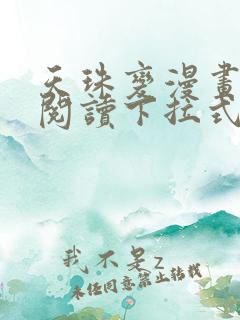 天珠變漫畫
閱讀下拉式
我不是z
未經同意禁止轉載